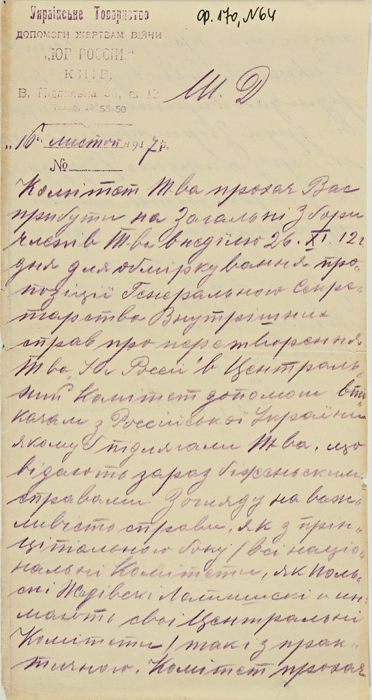 Українське Товариство
ДОПОМОГИ ЖЕРТВАМ ВІЙНИ
„ЮГ РОССІИ"
КИЇВ,
В. Підвальна
Ф. 170, №64
М. Д.
„16" листоп 1917 р.
№
Комітет Т-ва прохає Вас
прибути на Загальні Збори
членів Т-ва в неділю 26. XI. 12 г.
дня для обміркування про-
позіції Генерального Секре-
тарства Внутрішніх
справ про перетворення
Т-ва Юг Россі в Централь-
ний Комітет допомоги втi-
качам з Російської України
якому б підлягали Т-ва, що
відають зараз біженськими
справами. Зогляду на важ-
ливість справи, як з прін-
ціпіального боку / всі націо-
нальні Комітети, як Поль-
ські Жидівські Латишські и ин.
мають свої Центральні
Комітети / так і з прак-
тичного, Комітет прохає